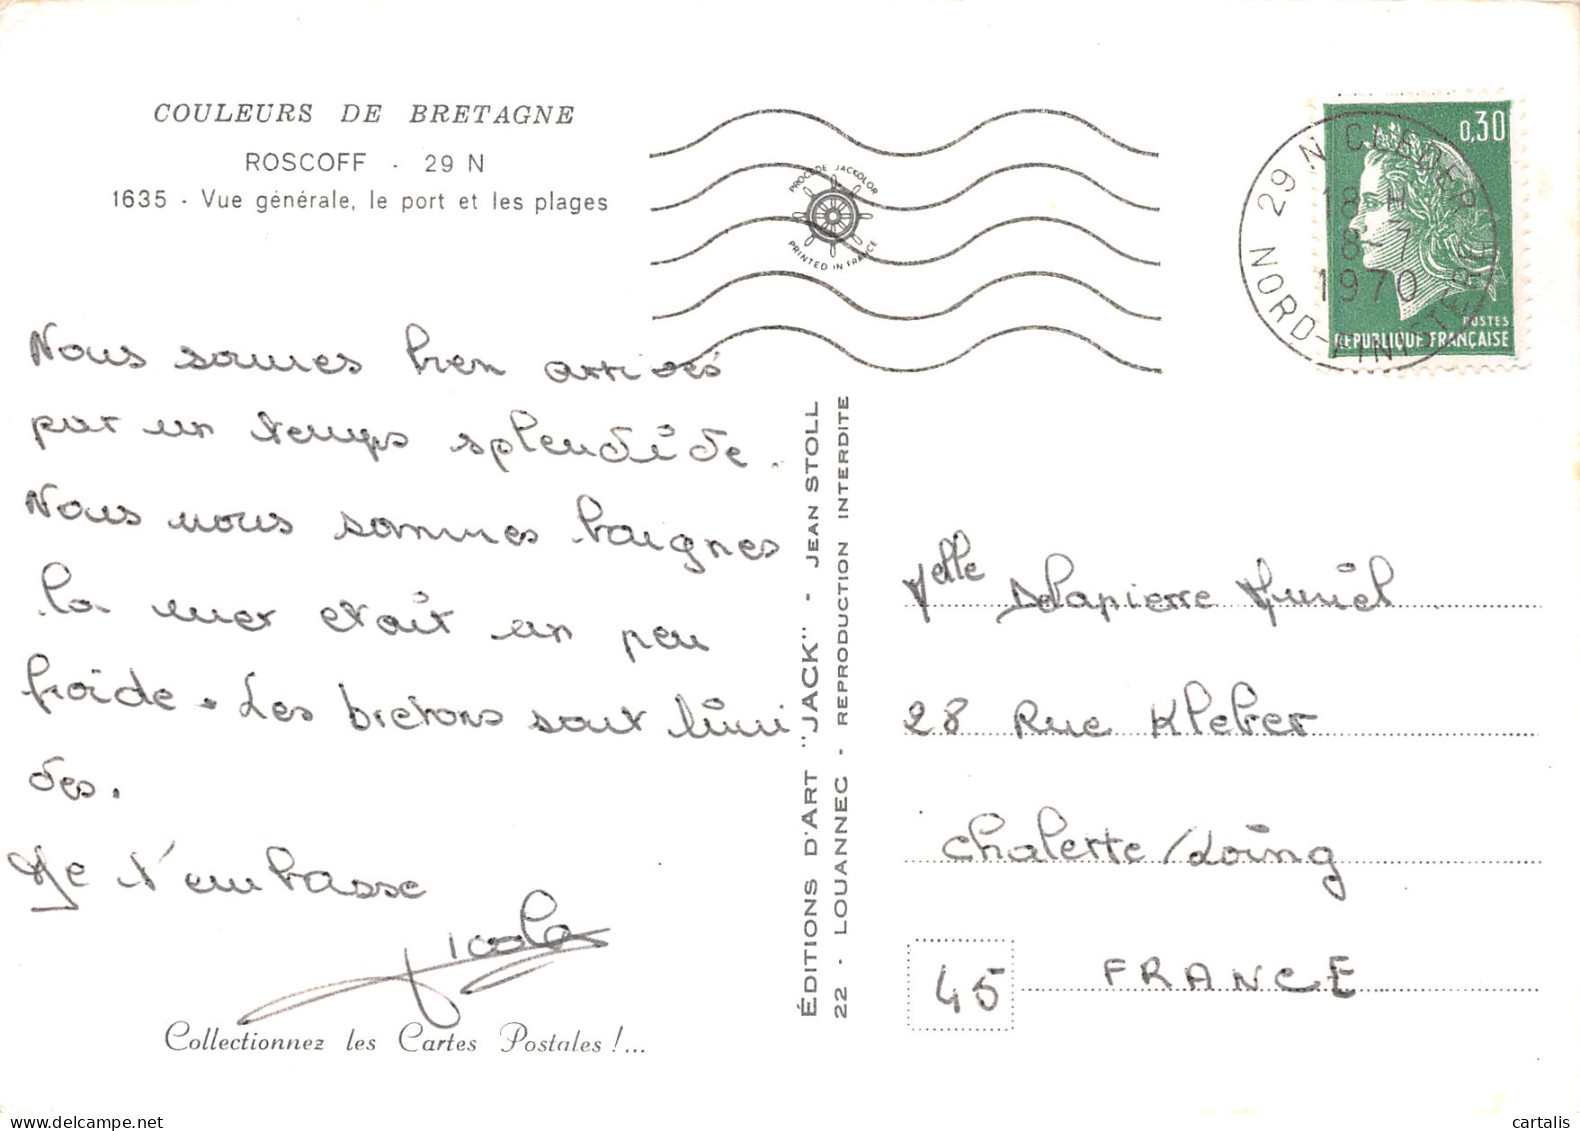 COULEURS DE BRETAGNE
ROSCOFF - 29 N
1635 - Vue générale, le port et les plages
PROCÉDÉ JACKOLOR
PRINTED IN FRANCE
0,30
POSTES
REPUBLIQUE FRANÇAISE
29 N CLEDER
18 H
8-7
1970
NORD-FINISTERE
Nous somes bien arrivés
par un temps splendide.
Nous nous sommes baignes
la mer etait un peu
froide. Les bretons sont timi
des.
Je t'embrasse
Nicole
Collectionnez les Cartes Postales !...
ÉDITIONS D'ART "JACK" - JEAN STOLL
22 - LOUANNEC - REPRODUCTION INTERDITE
Melle Delapierre Muriel
28 Rue Kleber
Chalette/Loing
45 FRANCE
cartalis